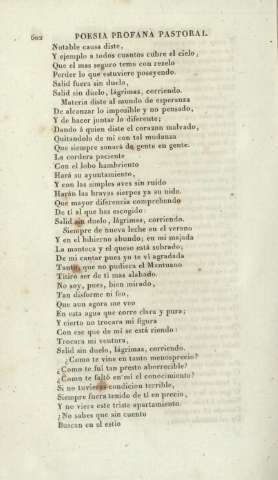 602 POESIA PROFANA PASTORAL.
Notable causa diste,
Y ejemplo a todos cuantos cubre el cielo,
Que el mas seguro tema con rezelo
Perder lo que estuviere poseyendo.
Salid fuera sin duelo,
Salid sin duelo, lágrimas, corriendo.
Materia diste al mundo de esperanza
De alcanzar lo imposible y no pensado,
Y de hacer juntar lo diferente;
Dando á quien diste el corazon malvado,
Quitandolo de mi con tal mudanza
Que siempre sonará de gente en gente.
La cordera paciente
Con el lobo hambriento
Hará su ayuntamiento,
Y con las simples aves sin ruido
Harán las bravas sierpes ya su nido.
Que mayor diferencia comprehendo
De ti al que has escogido:
Salid sin duelo, lágrimas, corriendo.
Siempre de nueva leche en el verano
Y en el hibierno abundo; en mi majada
La manteca y el queso está sobrado;
De mi cantar pues yo te ví agradada
Tanto, que no pudiera el Mantuano
Titiro ser de tí mas alabado.
No soy, pues, bien mirado,
Tan disforme ni feo,
Que aun agora me veo
En esta agua que corre clara y pura;
Y cierto no trocara mi figura
Con ese que de mí se está riendo:
Trocara mi ventura,
Salid sin duelo, lágrimas, corriendo.
¿Como te vine en tanto menosprecio?
¿Como te fui tan presto aborrecible?
¿Como te faltó en mí el conocimiento?
Si no tuvieras condicion terrible,
Siempre fuera tenido de ti en precio,
Y no viera este triste apartamiento.
¿No sabes que sin cuento
Buscan en el estio